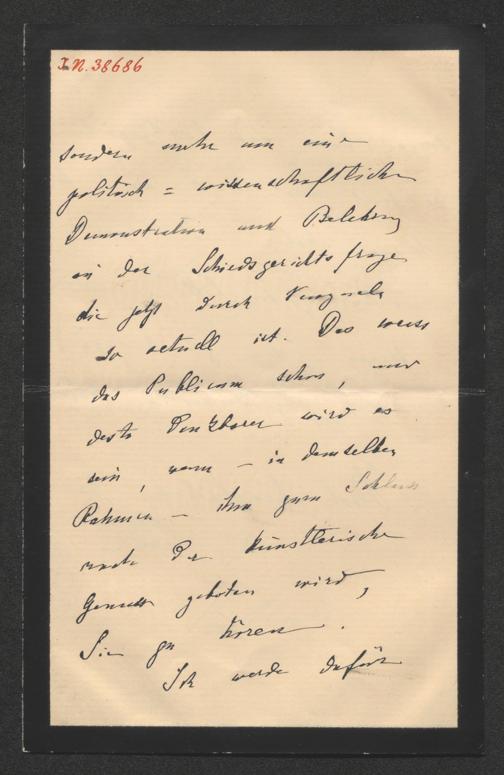 I.N. 38686
sondern mehr um eine
politisch = wissenschaftliche
Demonstration und Belehrung
in der Schiedsgerichtsfrage,
die jetzt durch Venezuela
so actuell ist. Das weiss
das Publicum schon, und
desto dankbarer wird es
sein, wenn – in demselben
Rahmen – ihm zum Schluss
noch der künstlerische
Genuss geboten wird,
Sie zu hören.
Ich werde dafür